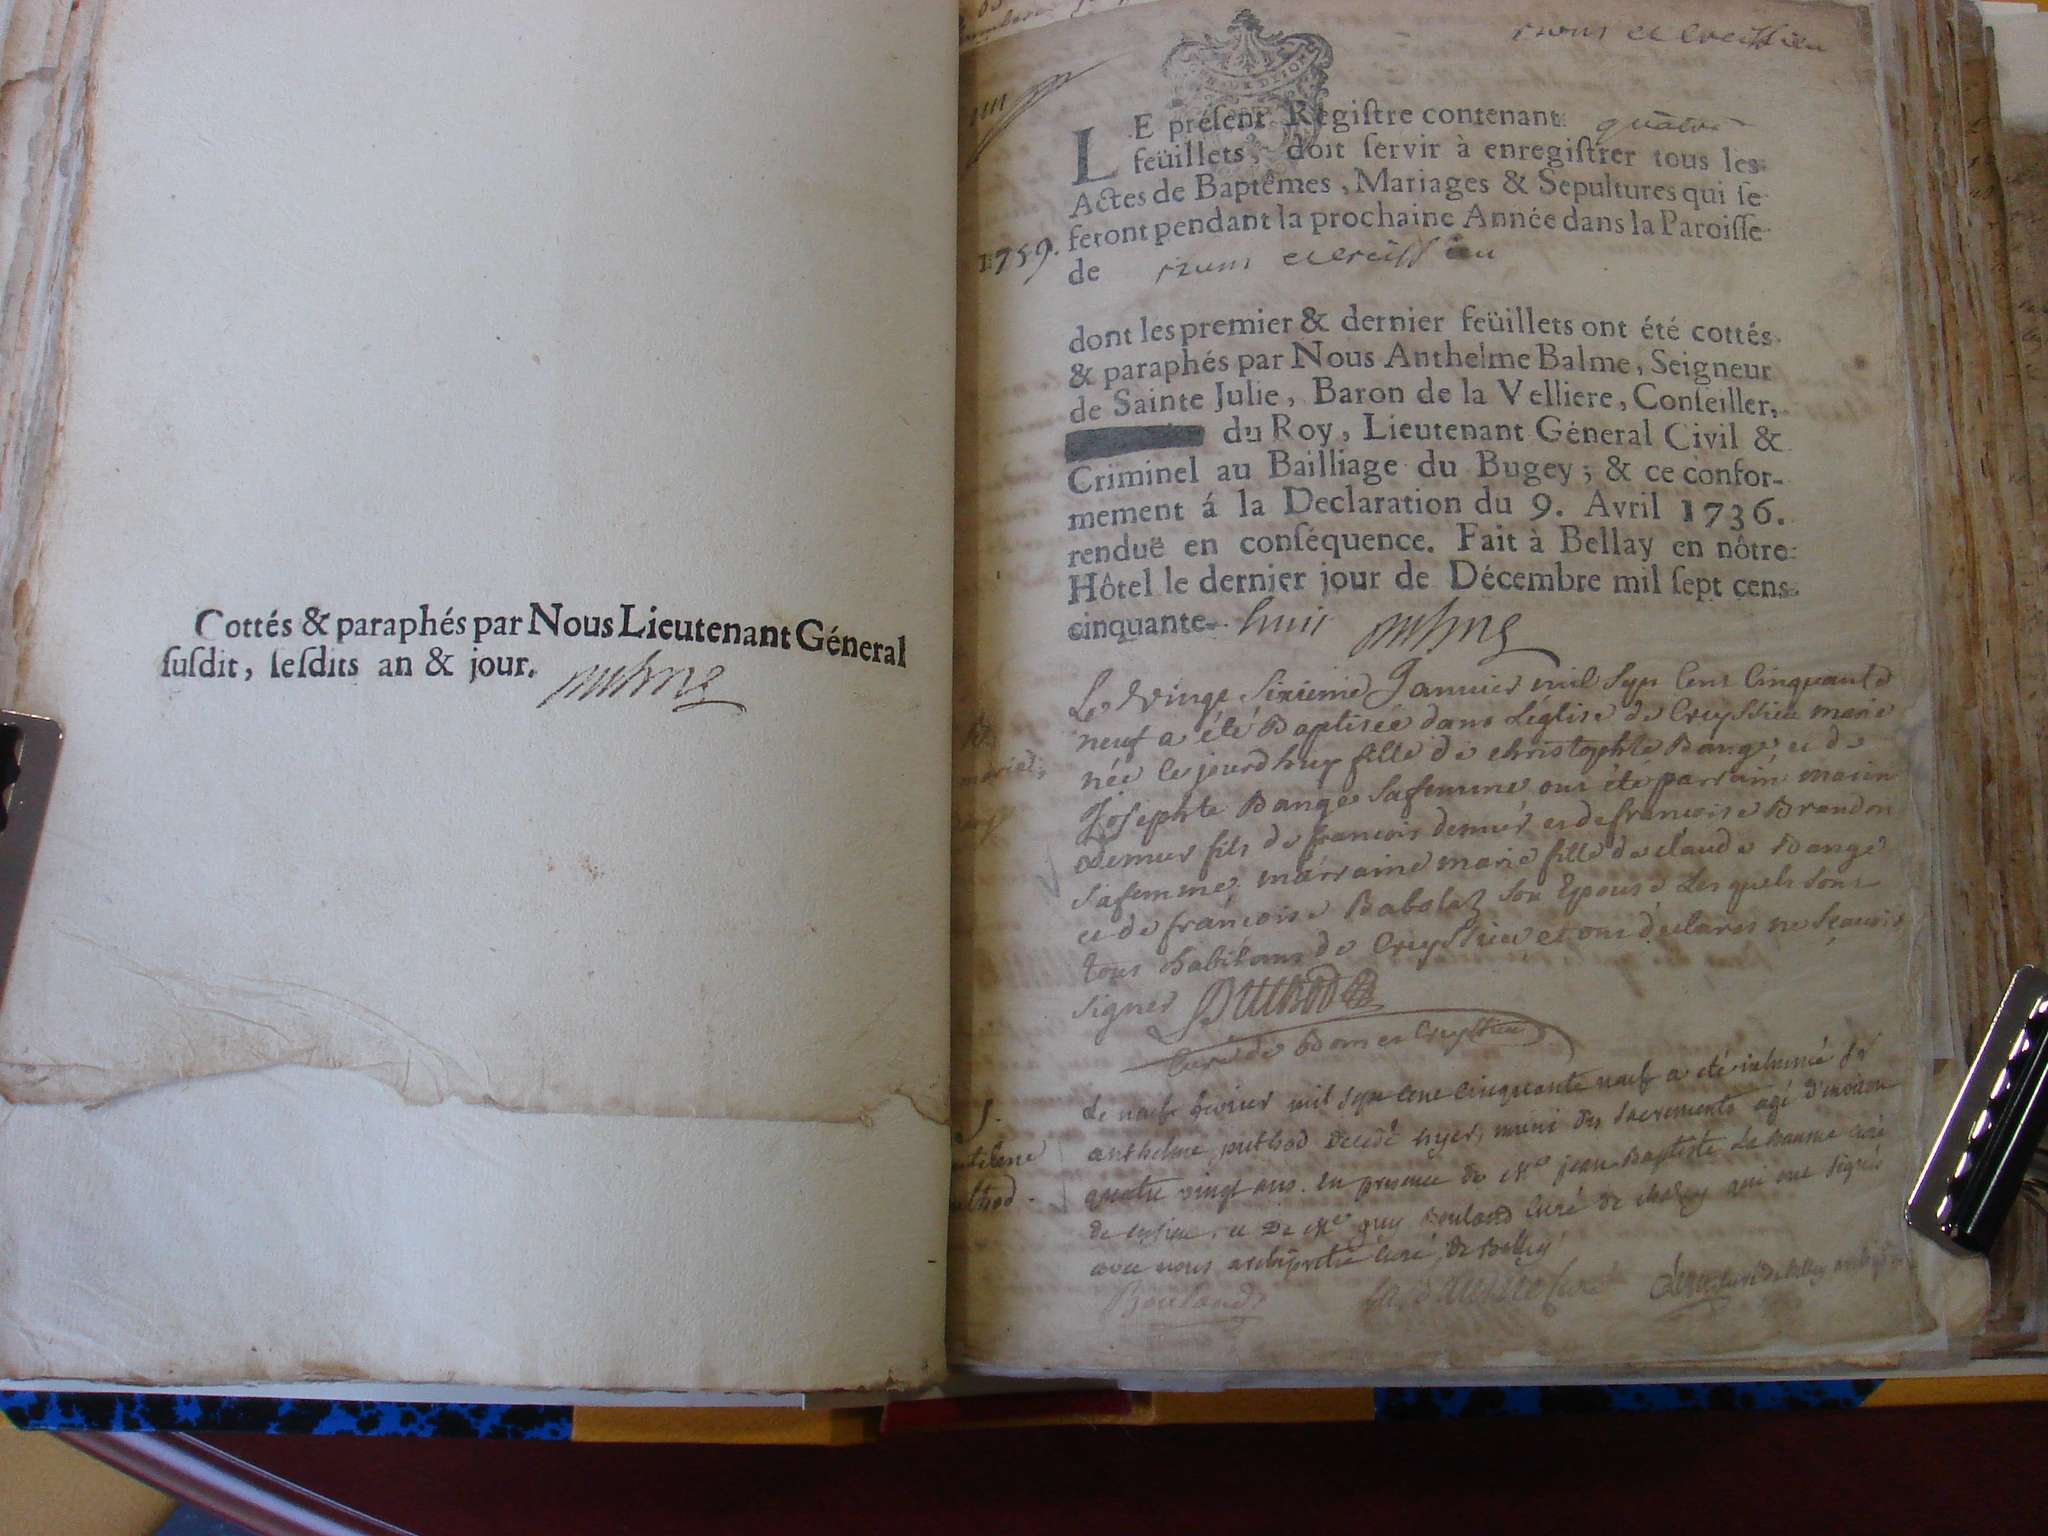 Cottés & paraphés par Nous Lieutenant Géneral
ſuſdit, leſdits an & jour.
quatre
LE préſent Regiſtre contenant
feüillets, doit ſervir à enregiſtrer tous les
Actes de Baptêmes, Mariages & Sepultures qui ſe
feront pendant la prochaine Année dans la Paroiſſe
1759.
de
dont les premier & dernier feüillets ont été cottés
& paraphés par Nous Anthelme Balme, Seigneur
de Sainte Julie, Baron de la Velliere, Conſeiller,
du Roy, Lieutenant Géneral Civil &
Criminel au Bailliage du Bugey; & ce confor-
mement á la Declaration du 9. Avril 1736.
renduë en conſéquence. Fait à Bellay en nôtre
Hôtel le dernier jour de Décembre mil ſept cens
cinquante huit
Le vingt sixieme Janvier mil sept cent Cinquante
neuf a été Baptisée dans L'église de Creyssieu marie
née ce jourdhuy fille de christophle Bange et de
Josephte Bange sa femme ont été parrain marin
demur fils de francois demur et de francoise Brandon
sa femme marraine marie fille de claude Bange
et de francoise Babolaz son Epouse Lesquels sont
tous habitans de Creyssieu et ont declarés ne scavoir
signer
Curé de et Creyssieu
Le neuf fevrier mil sept cent cinquante neuf a été inhumé
anthelme puthod decedé hyer, muni des sacrements agé d'environ
quatre vingt ans. en presence de Mre jean Baptiste La baume curé
de et de Mre guy Bouland Curé de qui ont signés
avec nous archiprêtre curé de Belley
Bouland